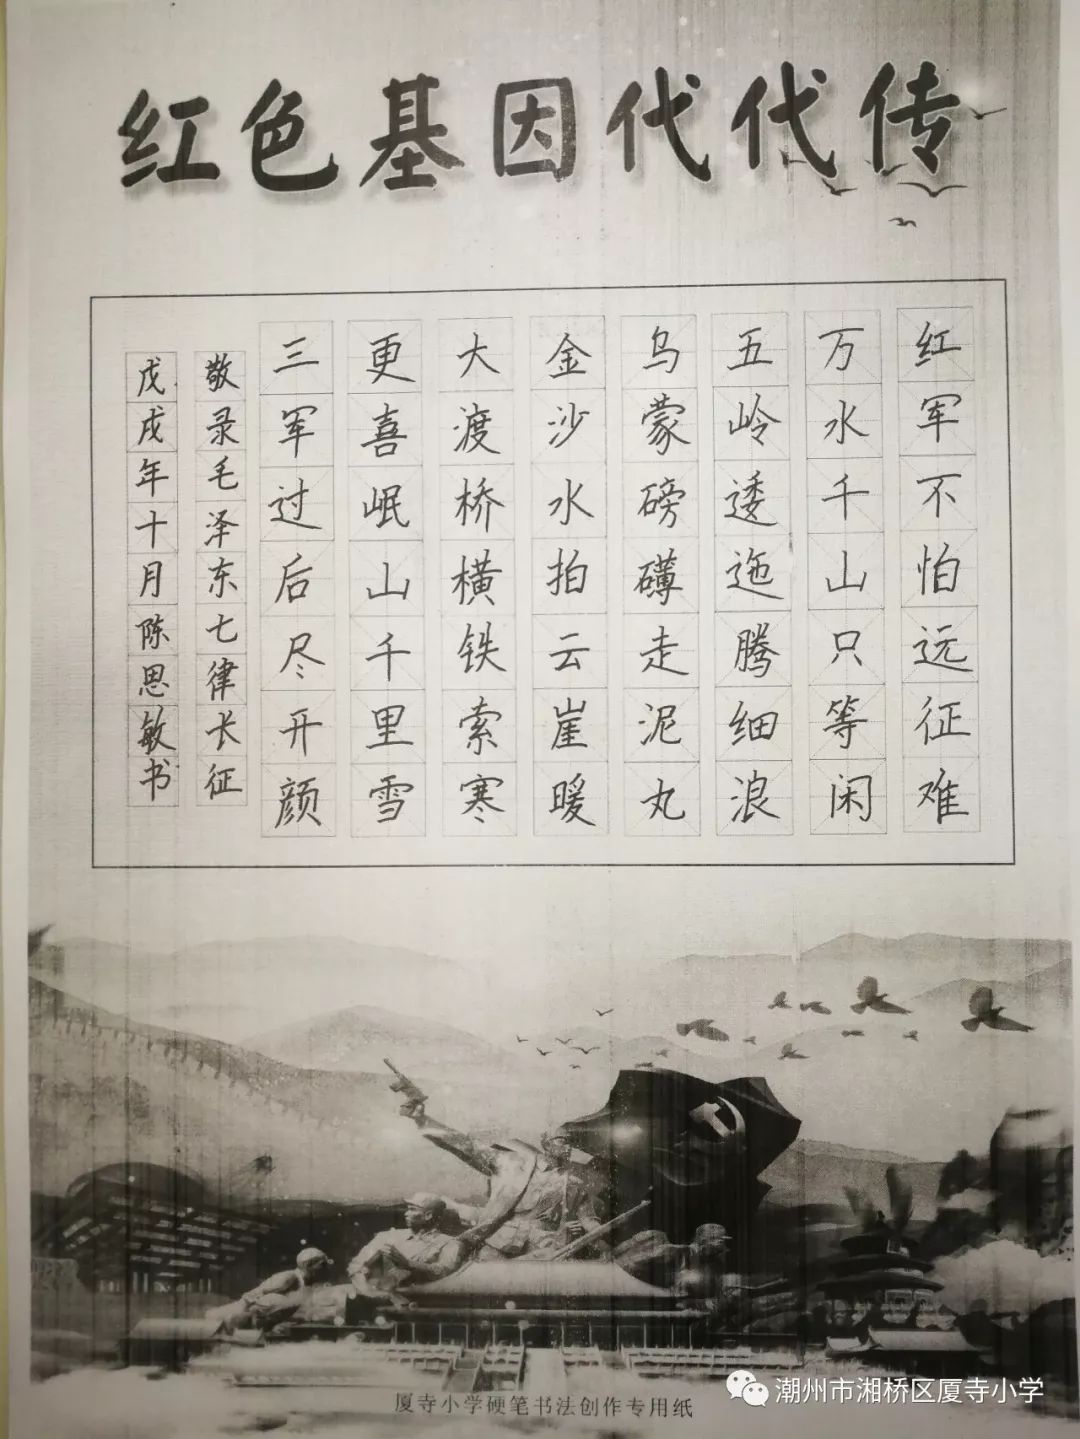 红色基因代代传
红军不怕远征难
万水千山只等闲
五岭逶迤腾细浪
乌蒙磅礴走泥丸
金沙水拍云崖暖
大渡桥横铁索寒
更喜岷山千里雪
三军过后尽开颜
敬录毛泽东七律长征
戊戌年十月陈思敏书
厦寺小学硬笔书法创作专用纸
潮州市湘桥区厦寺小学